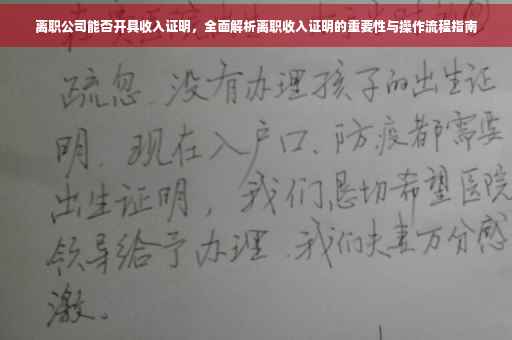 离职公司能否开具收入证明，全面解析离职收入证明的重要性与操作流程指南
疏忽、没有办理孩子的出生证
明、现在入户口、防疫都需要
出生证明，我们恳切希望医院
领导给予办理、我们夫妻万分感
激。